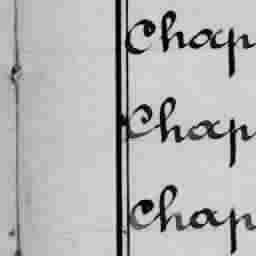 Chap
Chap
Chap